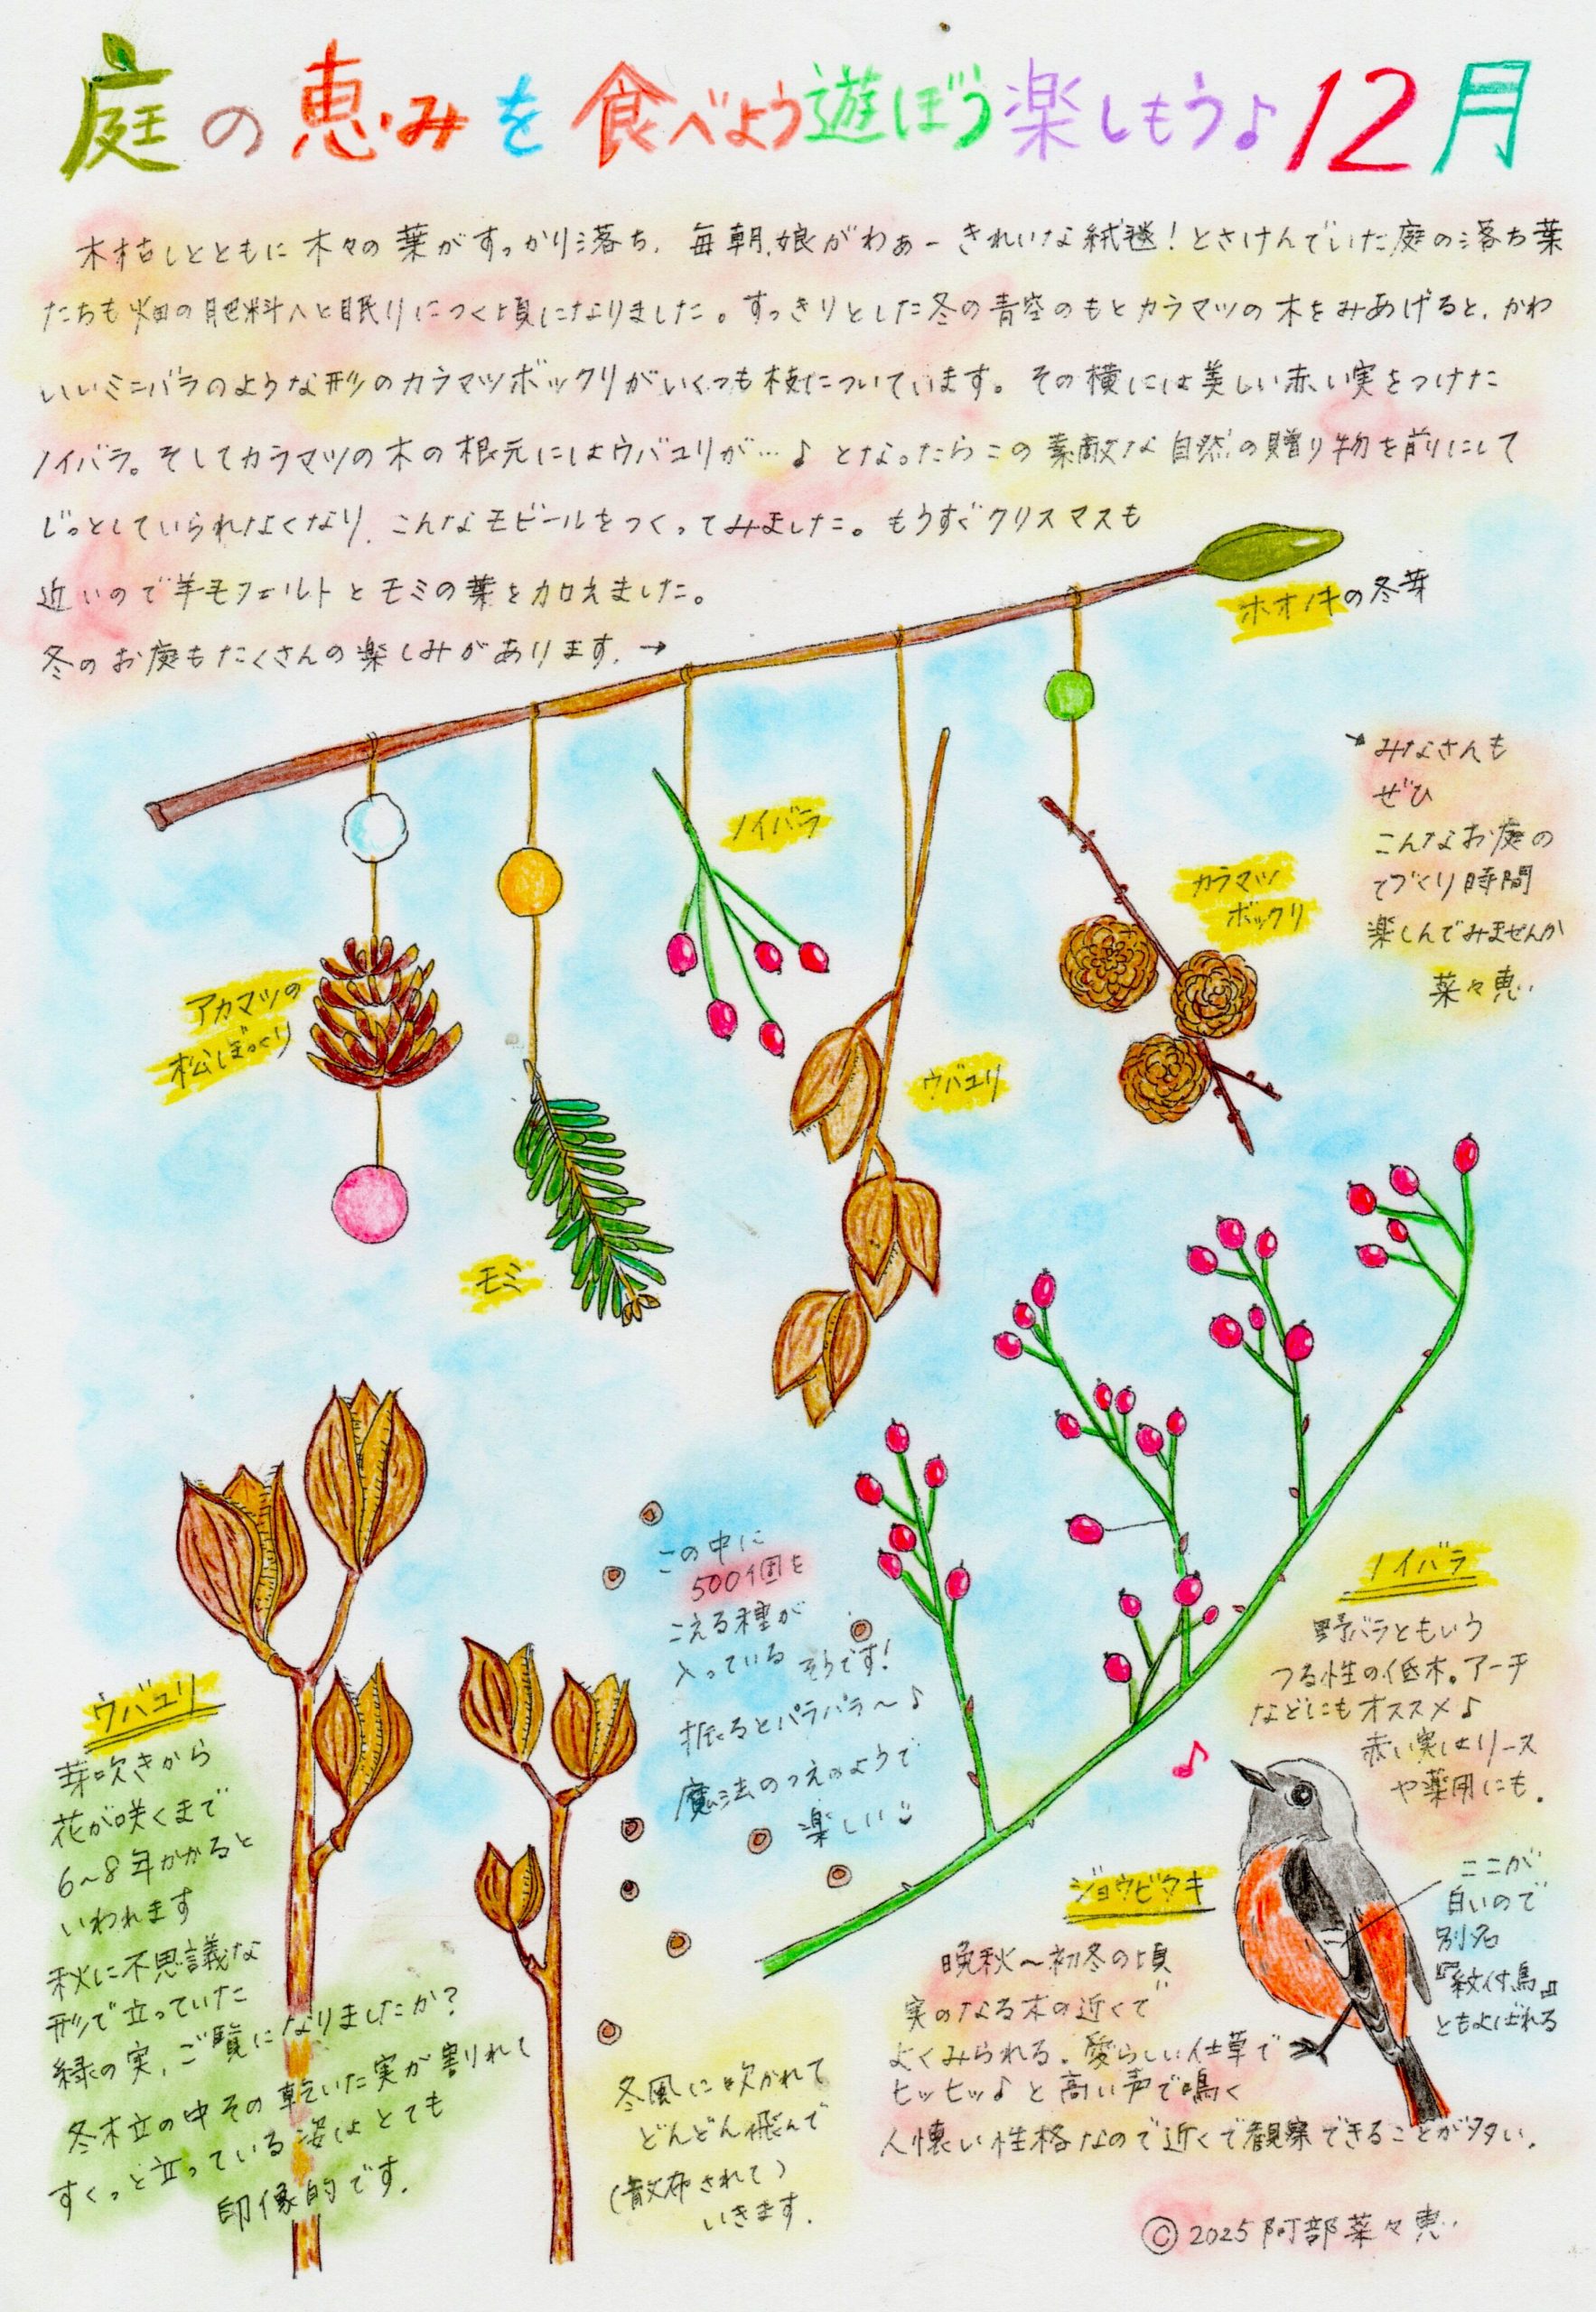 庭の恵みを食べよう遊ぼう楽しもう♪12月
木枯しとともに木々の葉がすっかり落ち、毎朝、娘がわぁーきれいな絨毯!とさけんでいた庭の落ち葉
たちも畑の肥料へと眠りにつく頃になりました。すっきりとした冬の青空のもとカラマツの木をみあげると、かわ
いいミニバラのような形のカラマツボックリがいくつも枝についています。その横には美しい赤い実をつけた
ノイバラ。そしてカラマツの木の根元にはウバユリが…♪となったらこの素敵な自然の贈り物を前にして
じっとしていられなくなり、こんなモビールをつくってみました。もうすぐクリスマスも
近いので羊毛フェルトとモミの葉を加えました。
冬のお庭もたくさんの楽しみがあります。→
ホオノキの冬芽
→みなさんも
ぜひ
こんなお庭の
てづくり時間
楽しんでみませんか
菜々恵
ノイバラ
カラマツ
ボックリ
アカマツの
松ぼっくり
ウバユリ
モミ
この中に
500個を
こえる種が
入っている そうです!
振るとパラパラ〜♪
魔法のつえのようで
楽しい
ノイバラ
野バラともいう
つる性の低木。アーチ
などにもオススメ♪
赤い実はリース
や薬用にも。
ウバユリ
芽吹きから
花が咲くまで
6〜8年かかると
いわれます
秋に不思議な
形で立っていた
緑の実、ご覧になりましたか?
冬木立の中その乾いた実が割れて
すくっと立っている姿はとても
印像的です。
冬風に吹かれて
どんどん飛んで
(散布されて)
いきます。
♪
ジョウビタキ
晩秋〜初冬の頃
実のなる木の近くで
よくみられる。愛らしい仕草で
ヒッヒッ♪と高い声で鳴く
人懐い性格なので近くで観察できることが多い。
ここが
白いので
別名
『紋付鳥』
ともよばれる
©2025 阿部菜々恵